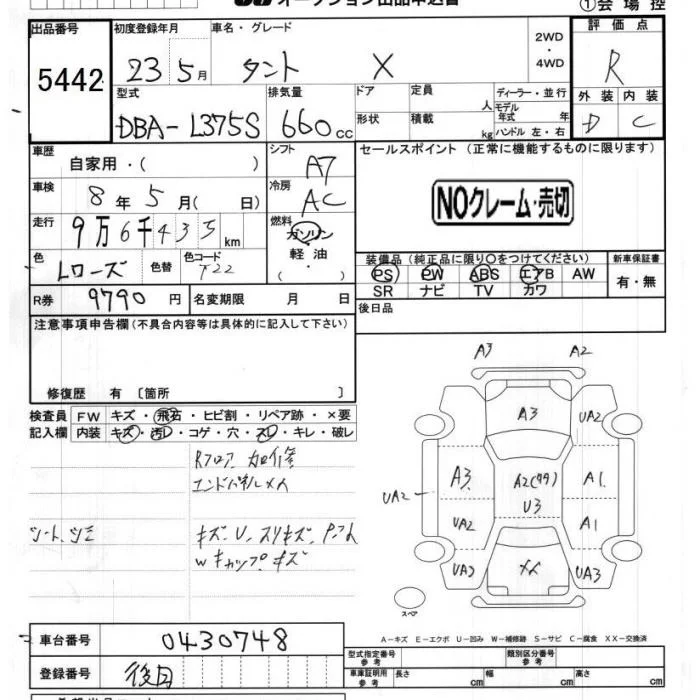 ①会場控
オークション出品申込書
出品番号 初度登録年月 車名・グレード 2WD ・ 4WD 評価点
5442 23 5月 タント X R
型式 排気量 ドア 定員 人 ディーラー・並行 外装 内装
DBA-L375S 660cc 形状 積載 kg モデル年式 年 ハンドル 左・右 D C
車歴 自家用・( ) シフト A7 セールスポイント (正常に機能するものに限ります)
車検 8年 5月( 日) 冷房 AC
NOクレーム・売切
走行 9万6千435km 燃料 ガソリン・軽油 ( ・ )
色 Lローズ 色替 色コード T22 装備品(純正品に限り○をつけてください) 新車保証書
PS PW ABS エアB AW 有・無
SR ナビ TV カワ
R券 9790円 名変期限 月 日 後日品
注意事項申告欄(不具合内容等は具体的に記入して下さい)
修復歴 有 [箇所 ]
検査員 FW キズ・飛石・ヒビ割・リペア跡・×要
記入欄 内装 キズ・汚レ・コゲ・穴・スレ・キレ・破レ
A3 A2
A3
UA2
A3 A2 A1
U3
UA2
UA2 A1
UA2 XX UA3
Rフロア 加修
エンドパネルメメ
シート、シミ キズ、U、スリキズ、
Wキャップ、キズ
スペア
A-キズ E-エクボ U-凹み W-補修跡 S-サビ C-腐食 XX-交換済
車台番号 0430748
型式指定番号 参考 類別区分番号 参考
登録番号 後日 車庫証明用 参考 長さ cm 幅 cm 高さ cm